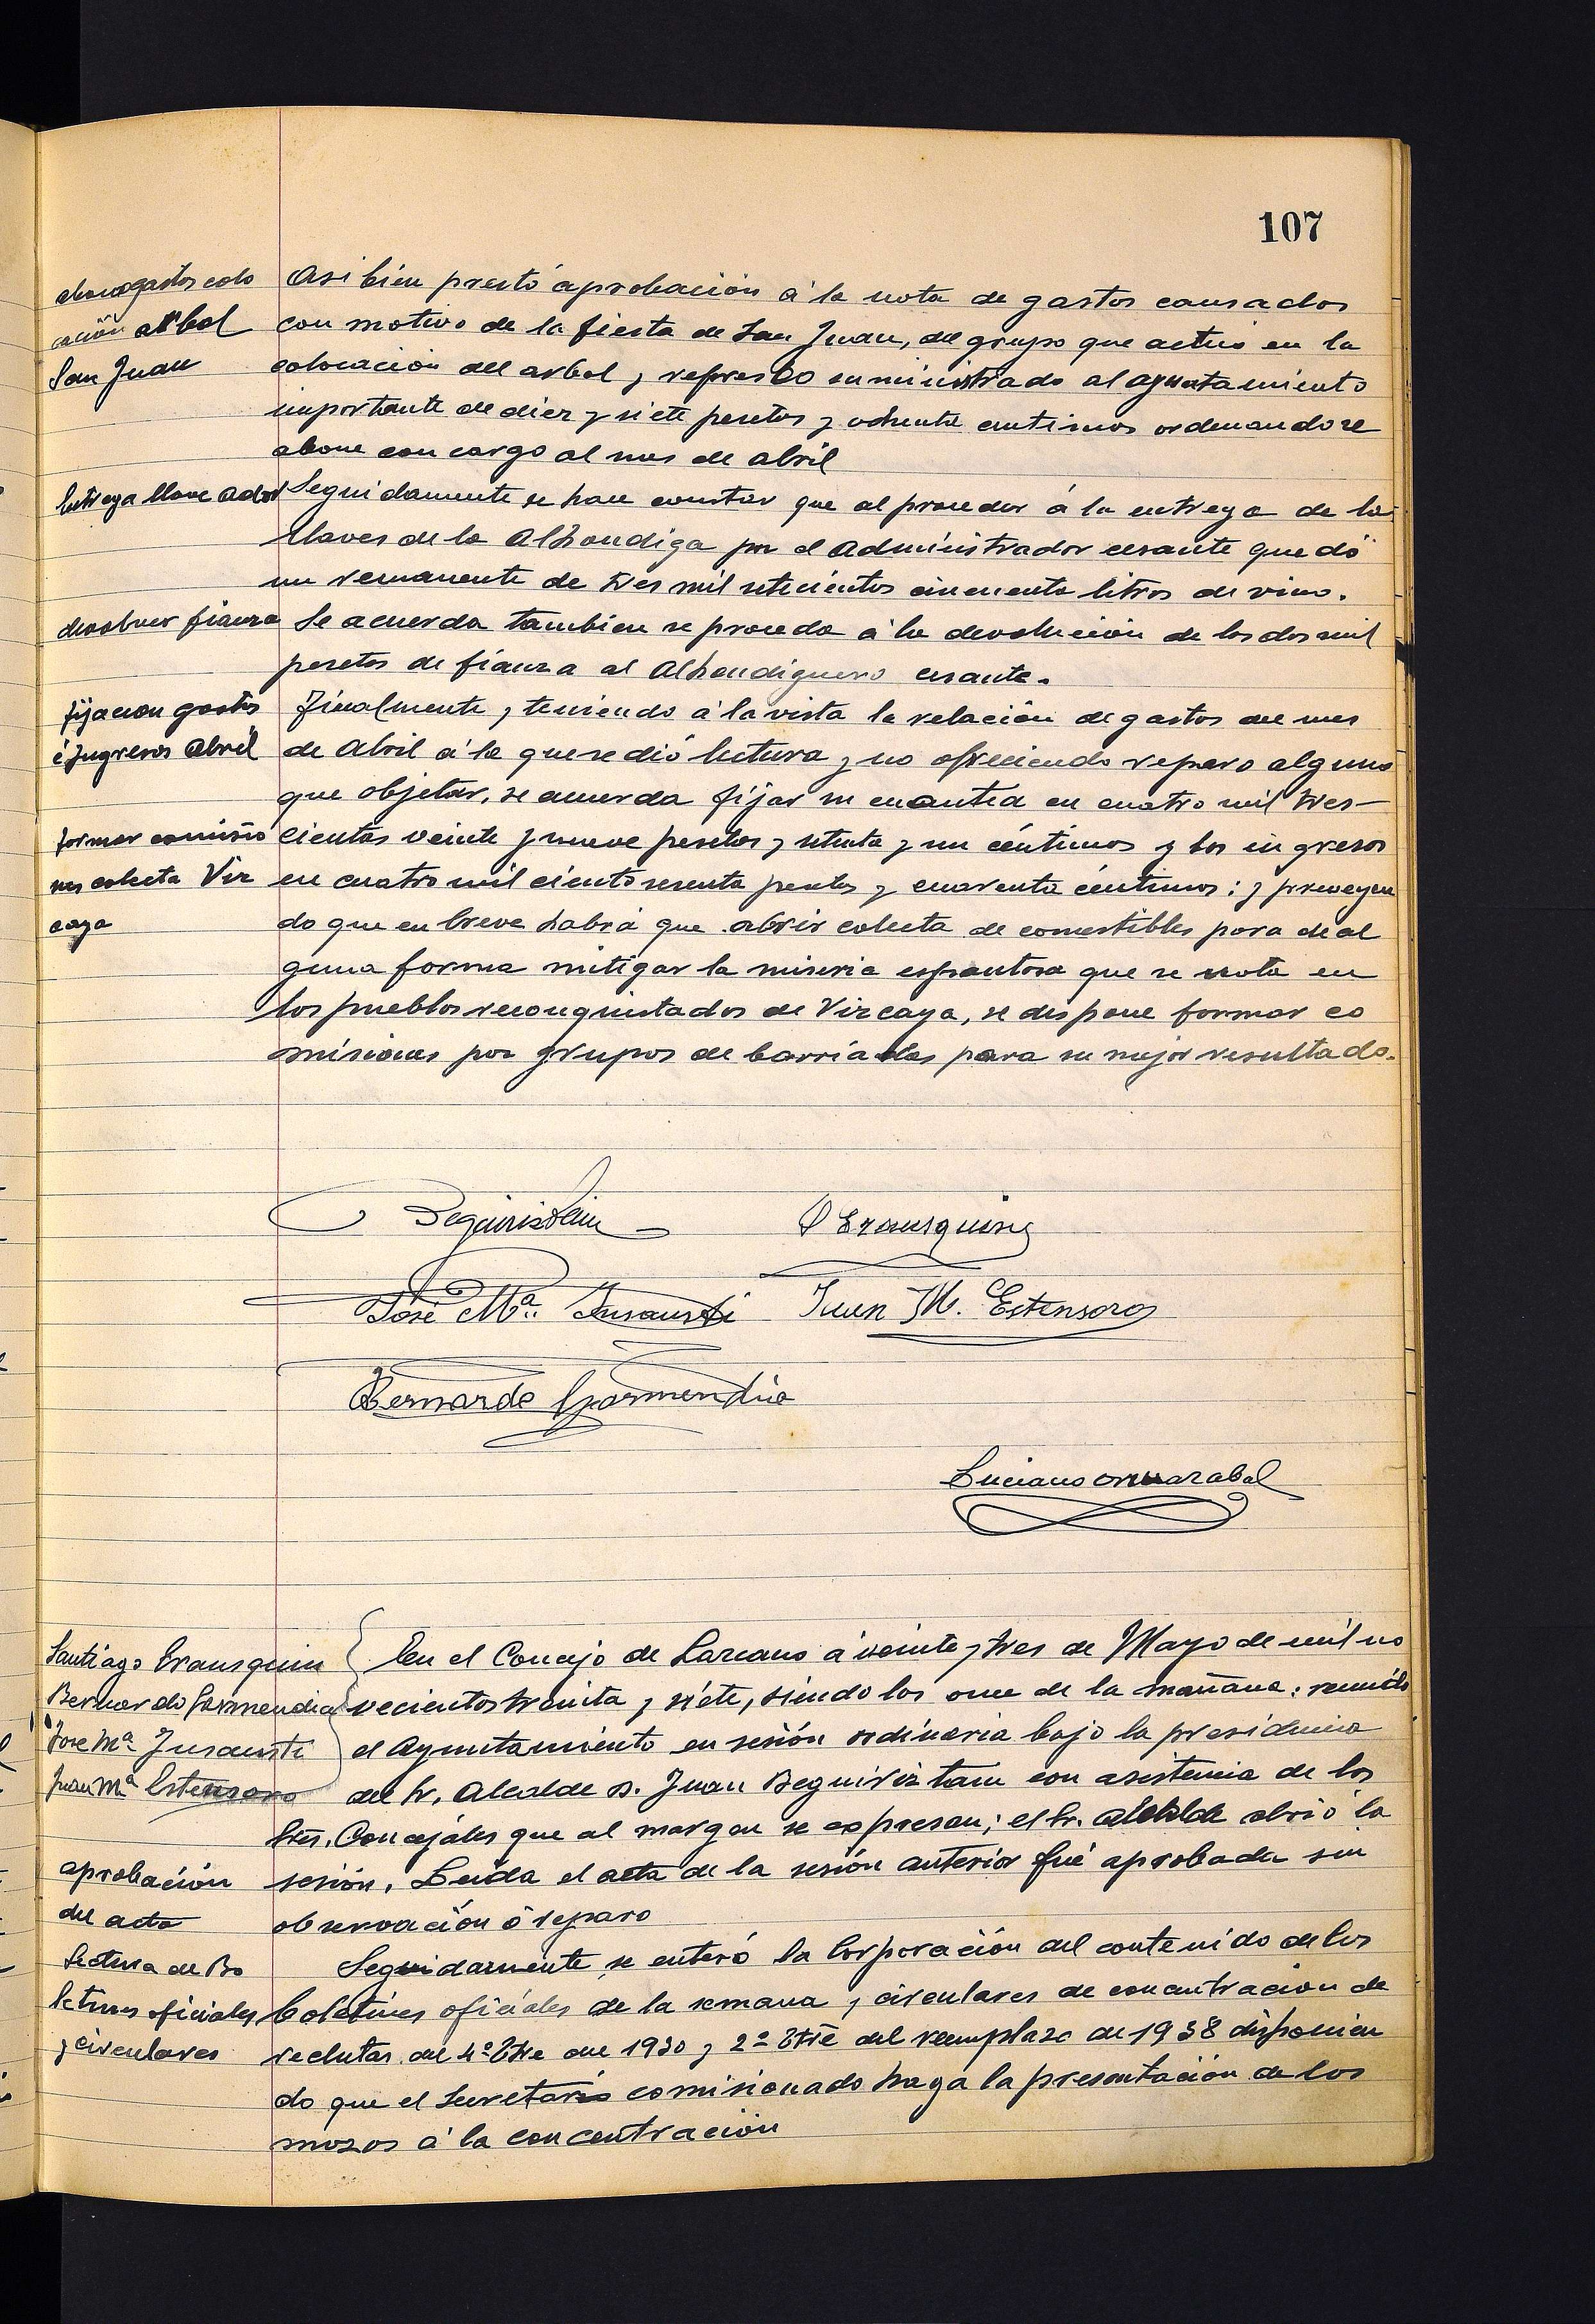 107
abono gastos colo
cación arbol
San Juan
Asi bien prestó aprobación á la nota de gastos causados
con motivo de la fiesta de San Juan, del grupo que actuó en la
colocación del arbol y refresco suministrado al ayuntamiento
importante de diez y siete pesetas y ochenta centimos ordenandose
abone con cargo al mes de abril
Entrega llave Ador
Seguidamente se hace constar que al proceder á la entrega de la
llaves de la Alhondiga por el Administrador cesante quedó
un remanente de tres mil setecientos cincuenta litros de vino.
devolver fianza
Se acuerda tambien se proceda á la devolución de los dos mil
pesetas de fianza al Alhondiguero cesante.
fijacion gastos
é Ingresos Abril
Finalmente, teniendo á la vista la relación de gastos del mes
de Abril á la que se dió lectura y no ofreciendo reparo alguno
que objetar, se acuerda fijar su cuantia en cuatro mil tres-
formar comisio
nes colecta Viz
caya
cientas veinte y nueve pesetas y setenta y un céntimos y los ingresos
en cuatro mil ciento sesenta pesetas y cuarenta céntimos; y preveyen
do que en breve habrá que abrir colecta de comestibles para de al
guna forma mitigar la miseria espantosa que se nota en
los pueblos reconquistados de Vizcaya, se dispone formar co
misiones por grupos de barriadas para su mejor resultado.
Beguiristain
S Erausquin
José Mª Insausti
Juan M. Estensoro
Bernardo Garmendia
Luciano
Santiago Erausquin
Bernardo Garmendia
Jose Mª Insausti
Juan Mª Estensoro
En el Concejo de Lazcano á veinte y tres de Mayo de mil no
vecientos treinta y siete, siendo las once de la mañana: reunido
el Ayuntamiento en sesión ordinaria bajo la presidencia
del Sr. Alcalde D. Juan Beguiristain con asistencia de los
Sres. Concejales que al margen se expresan; el Sr. Alcalde abrió la
aprobación
del acta
sesión. Leida el acta de la sesión anterior fué aprobada sin
observación ó reparo
Lectura de Bo
letines oficiales
y circulares
Seguidamente se enteró la Corporación del contenido de los
boletines oficiales de la semana y circulares de concentracion de
reclutas del 4º Ttre del 1930 y 2º Ttre del reemplazo de 1938 disponien
do que el Secretario comisionado haga la presentación de los
mozos á la concentración